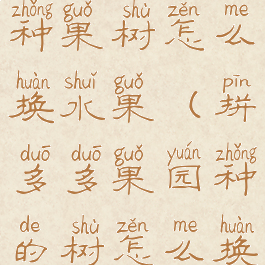 zhǒng guǒ shù zěn me
种果树怎么
huàn shuǐ guǒ pīn
换水果（拼
duō duō guǒ yuán zhǒng
多多果园种
de shù zěn me huàn
的树怎么换